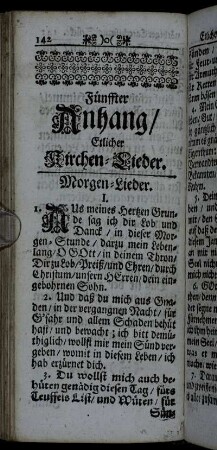 142 )o(
Fünffter
Anhang/
Etlicher
Kirchen-Lieder.
Morgen-Lieder.
I.
1. AUs meines Hertzen Grun-
de sag ich dir Lob und
Danck / in dieser Mor-
gen-Stunde / darzu mein Leben-
lang / O GOtt / in deinem Thron
Dir zu Lob / Preiß / und Ehren / durch
Christum / unsern HErren / dein ein-
gebohrnen Sohn.
2. Und daß du mich aus Gna-
den / in der vergangnen Nacht / für
G'fahr und allem Schaden behüt
hast / und bewacht ; ich bitt demü-
thiglich / wollst mir mein Sünd ver-
geben / womit in diesem Leben / ich
hab erzürnet dich.
3. Du wollst mich auch be-
hüten genädig diesen Tag / fürs
Teuffels List / und Wüten / für
Sün-